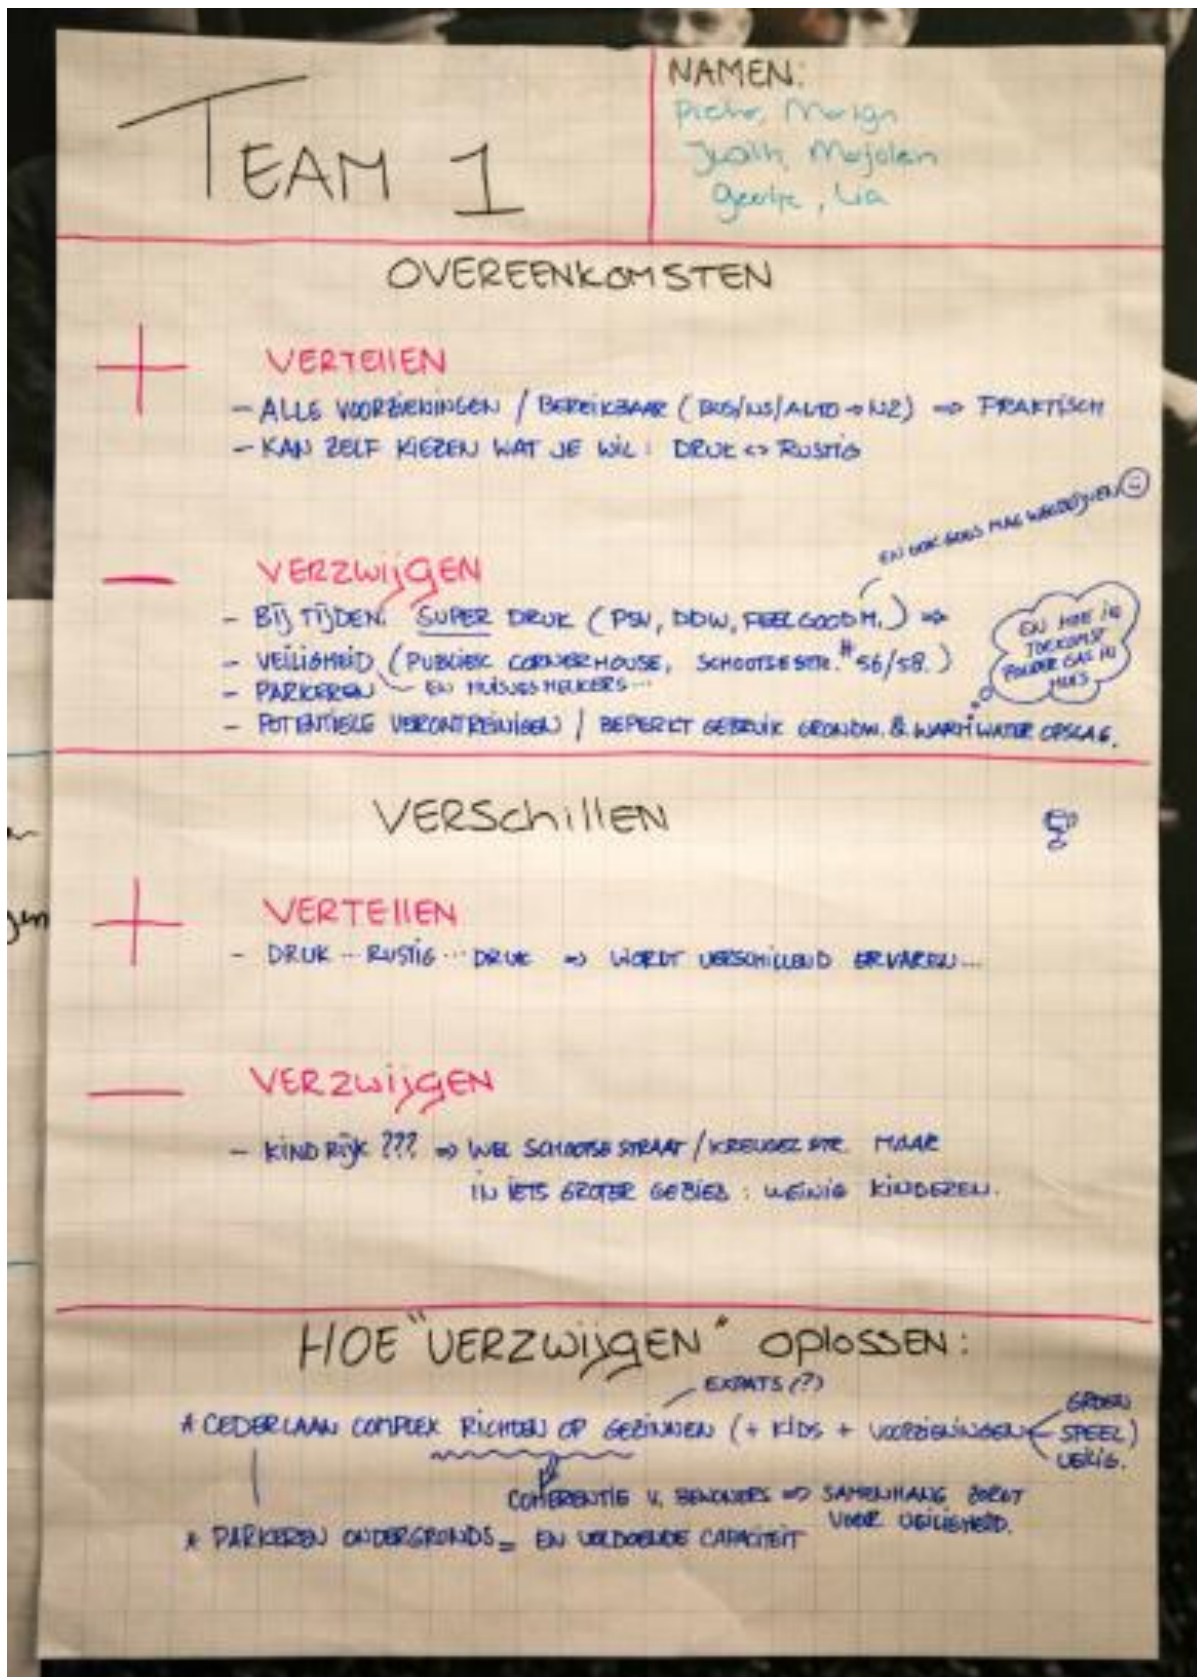 TEAM 1
NAMEN:
Pieter, Marign
Judith, Marjolein
Geertje, Lia
OVEREENKOMSTEN
+ VERTELLEN
- ALLE VOORZIENINGEN / BEREIKBAAR (BUS/NS/AUTO → N2) => PRAKTISCH
- KAN ZELF KIEZEN WAT JE WIL: DRUK <> RUSTIG
- VERZWIJGEN
EN OOK GOES MAG VERDWIJNEN
- BIJ TIJDEN. SUPER DRUK (PSV, DDW, FEELGOOD M.) =>
- VEILIGHEID (PUBLIEK CORNERHOUSE, SCHOOTSESTR. # 56/58.)
- PARKEREN EN HUISJESMELKERS...
- POTENTIELE VERONTREINIGEN / BEPERKT GEBRUIK GRONDW. & WARM WATER OPSLAG.
EN HOE IN
TOEKOMST
ZONDER GAS IN
HUIS
VERSCHILLEN
+ VERTELLEN
- DRUK ... RUSTIG ... DRUK => WORDT VERSCHILLEND ERVAREN...
- VERZWIJGEN
- KINDRIJK ??? => WEL SCHOOTSE STRAAT / KREUGEL STR. MAAR
IN IETS GROTER GEBIED: WEINIG KINDEREN.
HOE "VERZWIJGEN" OPLOSSEN:
EXPATS (?)
* CEDERLAAN COMPLEX RICHTEN OP GEZINNEN (+ KIDS + VOORZIENINGEN
GROEN
SPEEL)
VEILIG.
COHERENTIE V. BEWONERS => SAMENHANG ZORGT
VOOR VEILIGHEID.
* PARKEREN ONDERGRONDS = EN VOLDOENDE CAPACITEIT